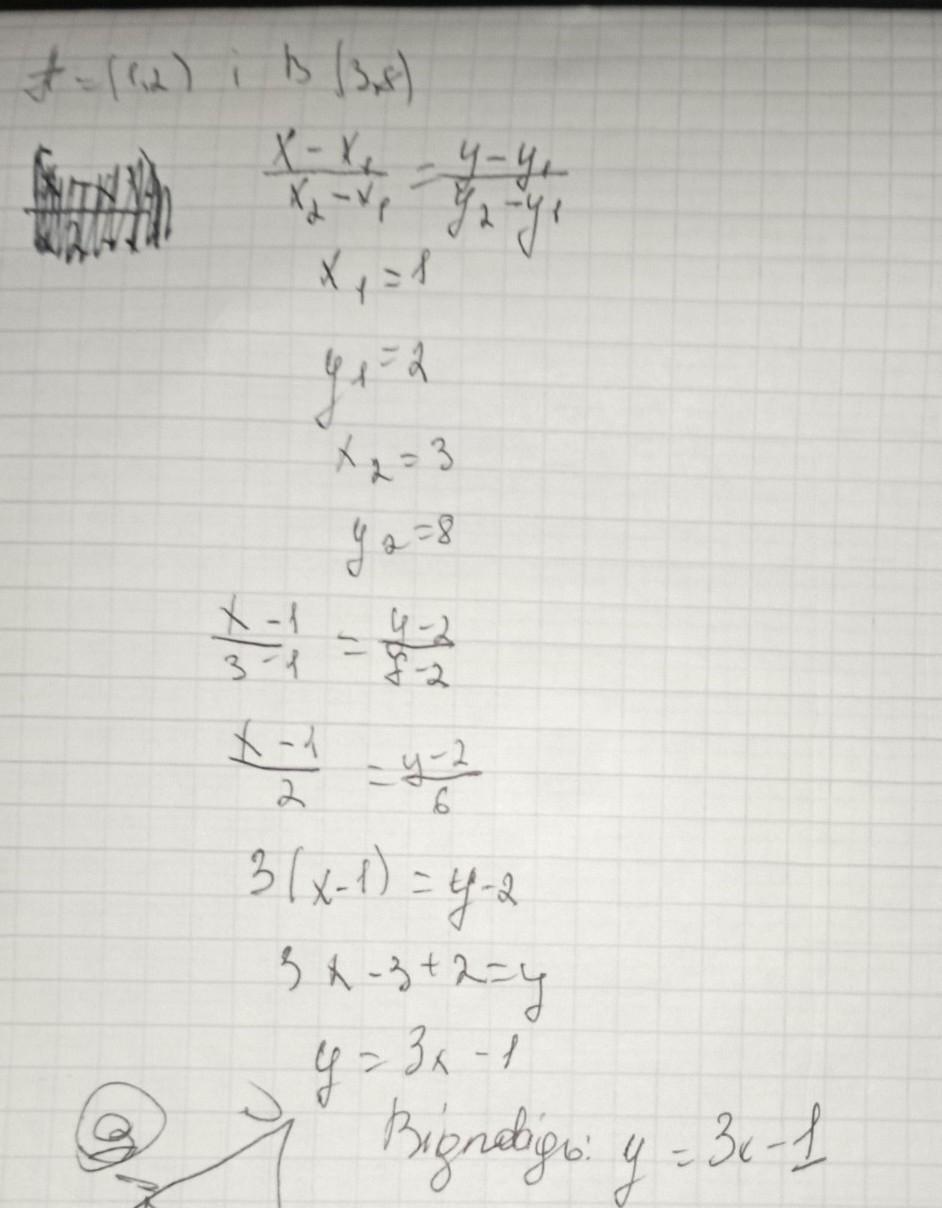 A = (1,2) і B (3,8)
x - x₁ / x₂ - x₁ = y - y₁ / y₂ - y₁
x₁ = 1
y₁ = 2
x₂ = 3
y₂ = 8
x - 1 / 3 - 1 = y - 2 / 8 - 2
x - 1 / 2 = y - 2 / 6
3(x - 1) = y - 2
3x - 3 + 2 = y
y = 3x - 1
Відповідь: y = 3x - 1